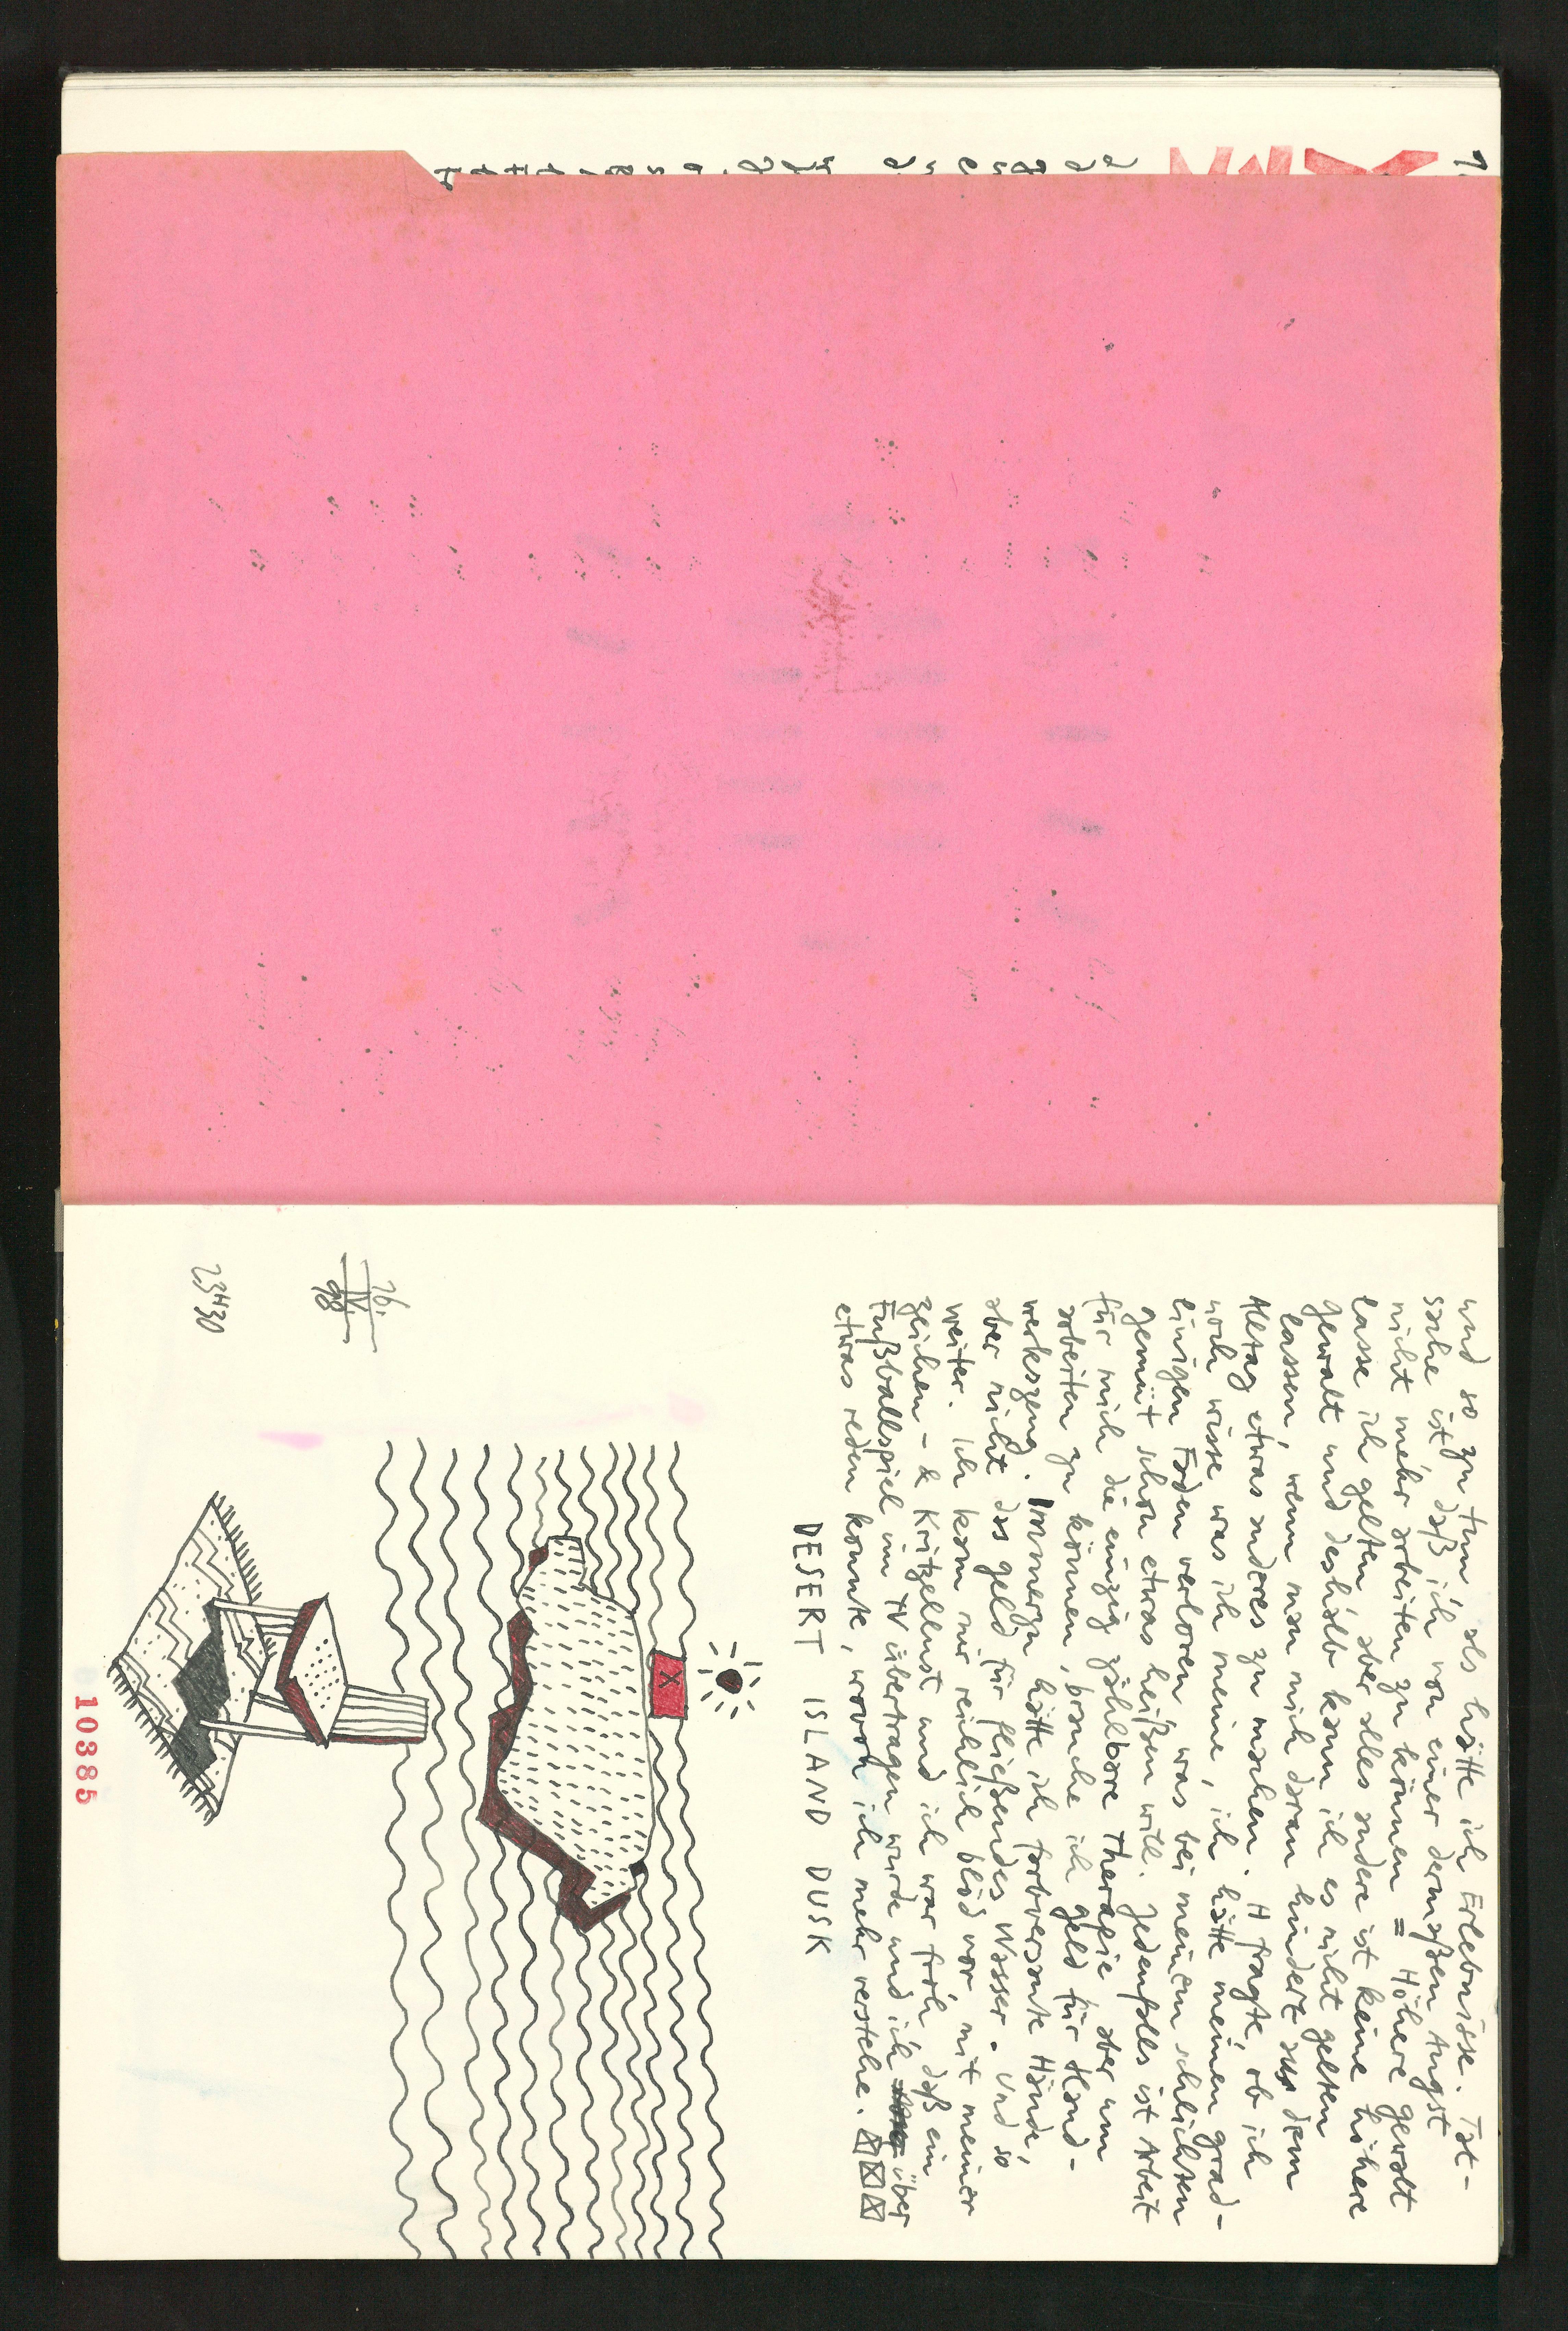 und so zu tun als hätte ich Erlebnisse. Tat-
sache ist, daß ich von einer dermaßen Angst
nicht mehr arbeiten zu können = Höhere gewalt
lasse ich gelten aber alles andere ist keine höhere
gewalt und deshalb kann ich es nicht gelten
lassen, wenn man mich daran hindert aus dem
Alltag etwas anderes zu machen. H fragte, ob ich
noch wisse was ich meine, ich hätte meinen grad-
linigen Faden verloren was bei meinem schlichten
gemüt schon etwas heißen will. Jedenfalls ist Arbeit
für mich die einzig zählbare Therapie aber um
arbeiten zu können, brauche ich geld für Hand-
werkszeug. Immerzu hätte ich farbversaute Hände,
aber nicht das geld für fließendes Wasser. Und so
weiter. Ich kam mir reichlich blöd vor, mit meiner
zeichen- & Kritzellust und ich war froh daß ein
Fußballspiel im TV übertragen wurde und ich über
etwas reden konnte, wovon ich mehr verstehe.
DESERT ISLAND DUSK
X
26.
IV.
98
23H30
10385